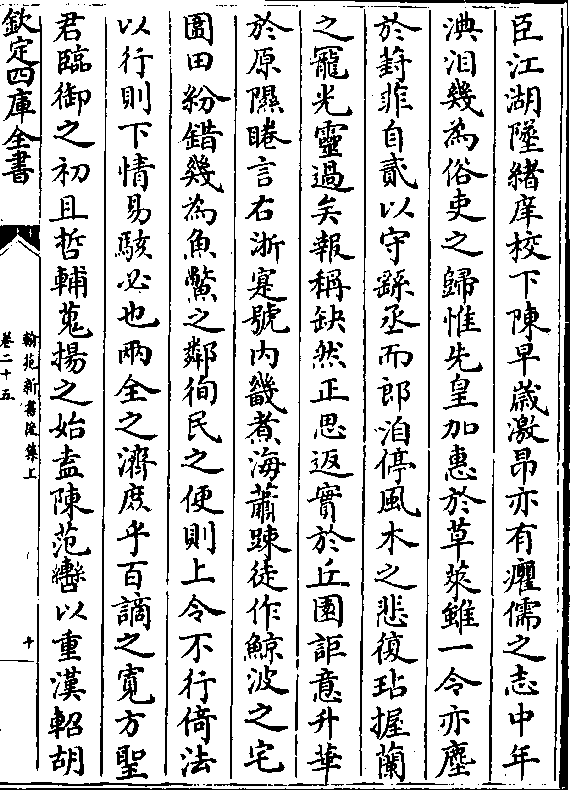 臣江湖墜緒庠校下陳早歲激昂亦有癯儒之志中年
淟汨幾為俗吏之歸惟先皇加惠於草萊雖一令亦塵
於葑菲自貳以守繇丞而郎洎停風木之悲復玷握蘭
之寵光靈過矣報稱缺然正思返實於丘園詎意升華
於原隰睠言右浙寔號内畿煮海蕭踈徒作鯨波之宅
圍田紛錯幾為魚鱉之鄰徇民之便則上令不行倚法
以行則下情易駭必也兩全之濟庶乎百謫之寛方聖
君臨御之初且哲輔蒐揚之始盍陳范轡以重漢軺胡
欽定四庫全書
翰苑新書後集上
卷二十五
十